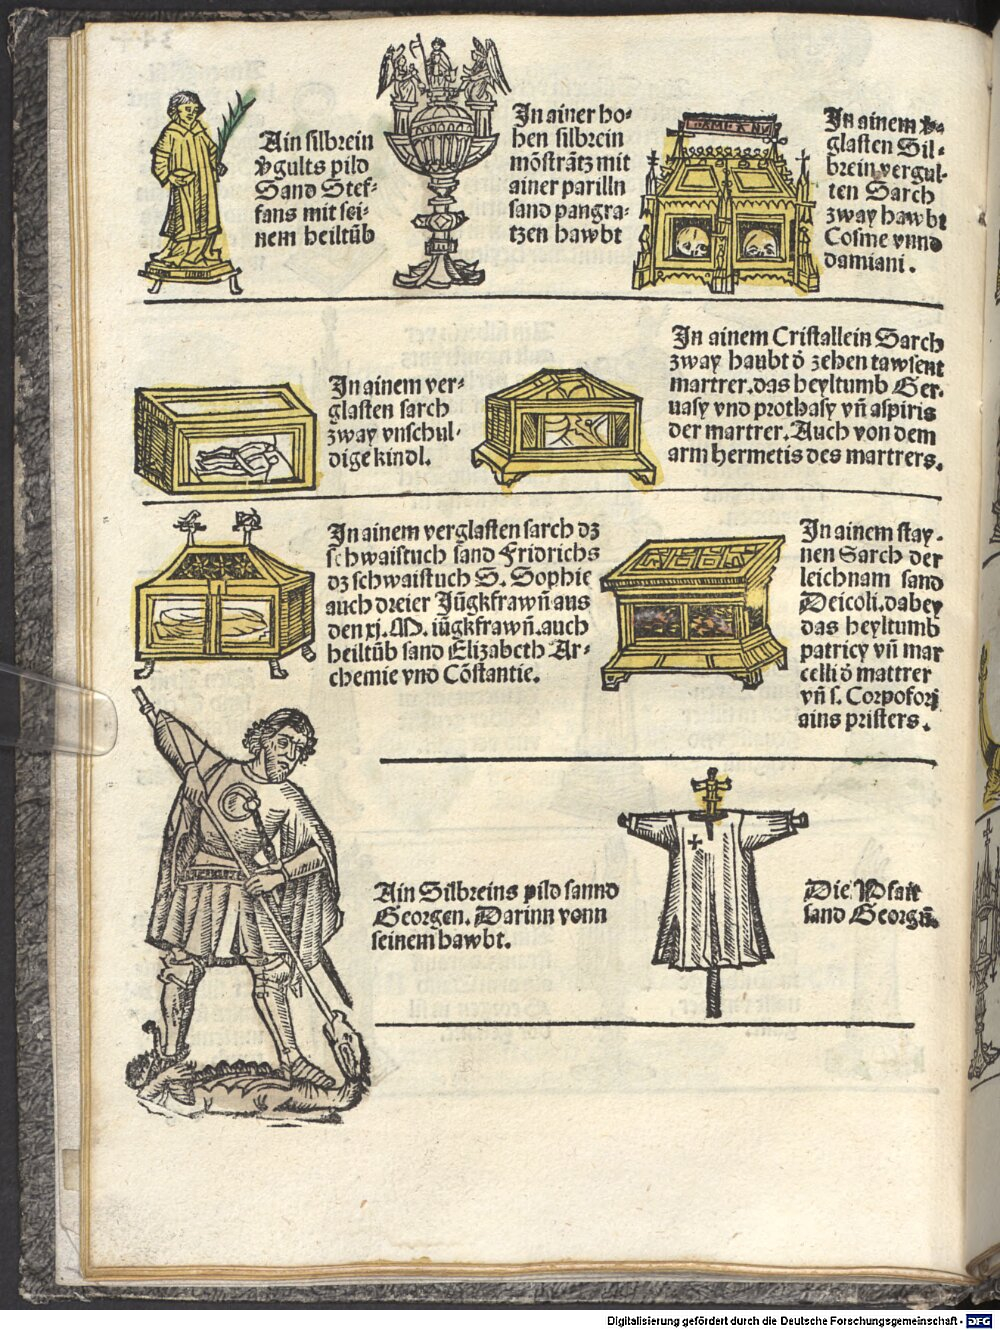 Ain silbrein
vgults pild
Sand Stef-
fans mit sei-
nem heiltũb
In ainer ho-
hen silbrein
mõstrãtz mit
ainer parilln
sand pangra-
tzen hawbt
In ainem
glasten Sil-
brein vergul-
ten Sarch
zway hawbt
Cosme vnnd
damiani.
In ainem ver-
glasten sarch
zway vnschul-
dige kindl.
In ainem Cristallein Sarch
zway haubt ð zehen tawsent
martrer. das heyltumb Ger-
uasy vnd prothasy vñ aspiris
der martrer. Auch von dem
arm hermetis des martrers.
In ainem verglasten sarch dz
schwaistuch sand Fridrichs
dz schwaistuch S. Sophie
auch dreier Jũgkfrawñ aus
den xj. M. iũgkfrawñ. auch
heiltũb sand Elizabeth Ar-
chemie vnd Cõstantie.
In ainem stay-
nen Sarch der
leichnam sand
Deicoli. dabey
das heyltumb
patricy vñ mar
celli ð mattrer
vñ s. Corpoforj
ains pristers.
Ain Silbreins pild sannd
Georgen. Darinn vonn
seinem hawbt.
Die Pfait
sand Georgñ.
Digitalisierung gefördert durch die Deutsche Forschungsgemeinschaft - DFG